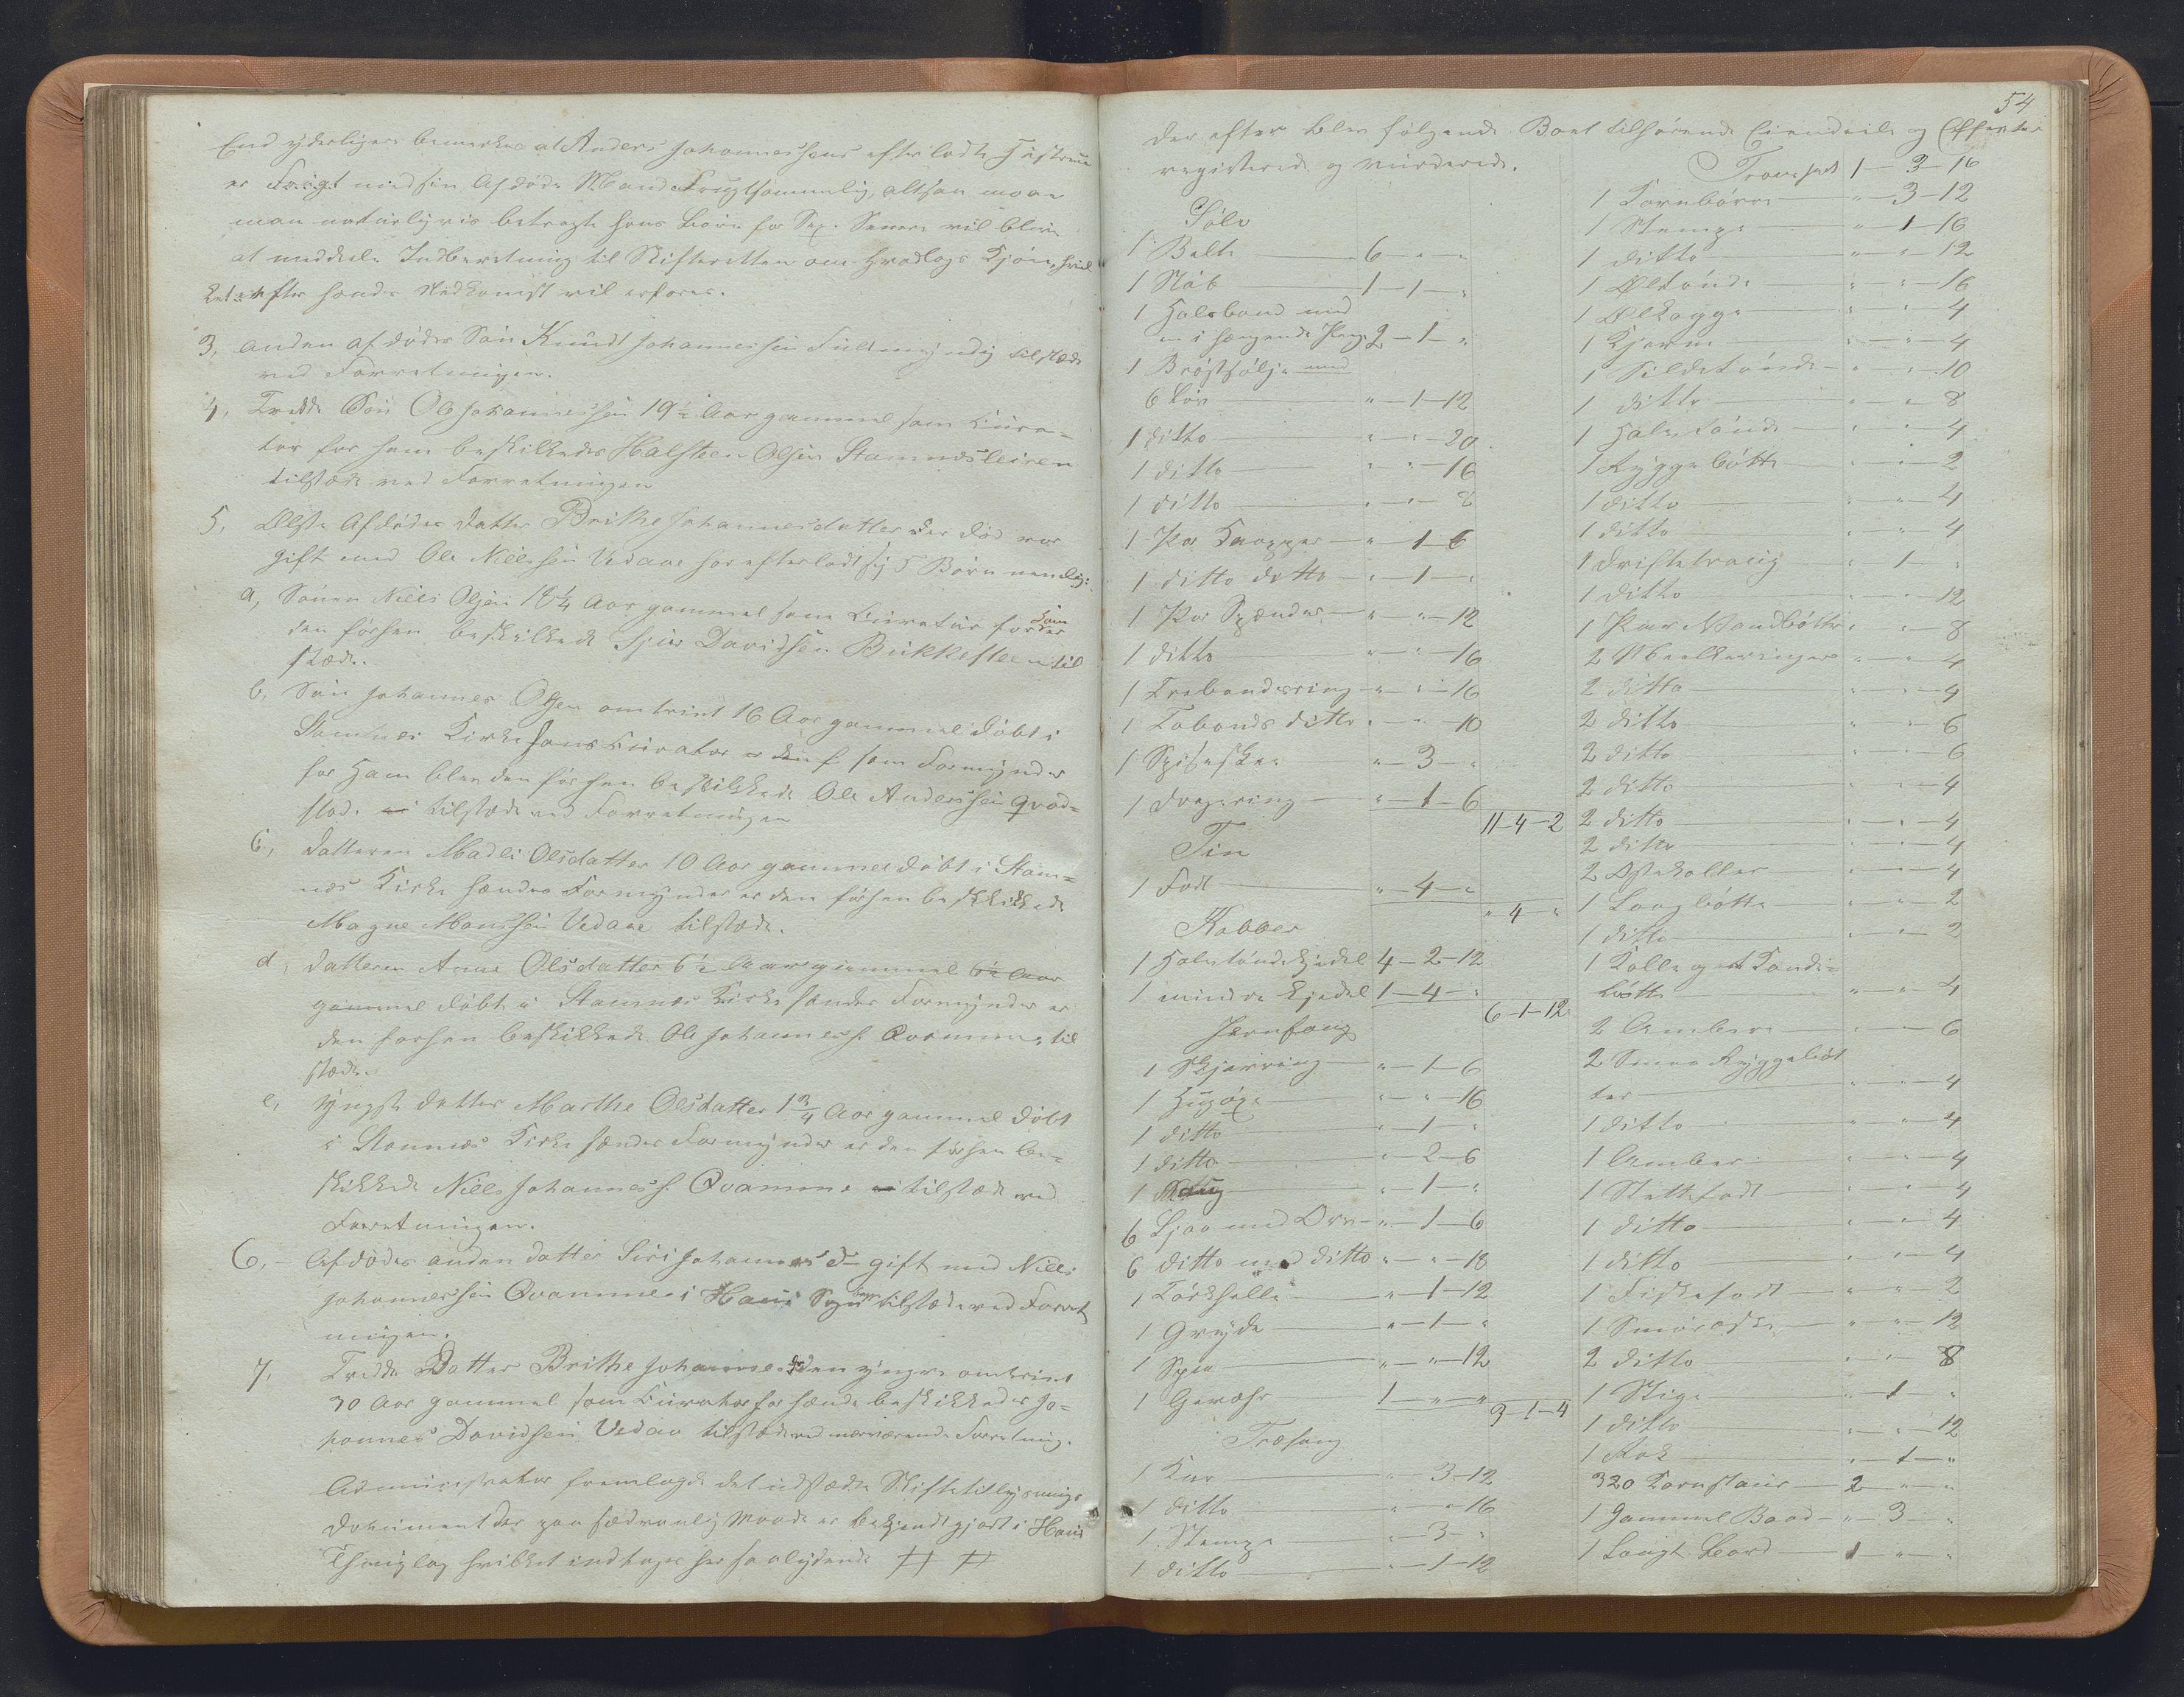 End yderligere bemærkes at Anders Johannessens efterladte Hustrue
er Frugt med sin Afdøde Mand Frugtsommelig, altsaa maae
man naturligvis betragte hans Børn for Sex. Senere vil blive
at meddele Indberetning til Skifteretten om hvadlags Kjøn, hvil
ket efter hends Nedkomst vil erfares.
3, anden afdødes Søn Knudt Johannessen Fuldmyndig tilstæde
ved Forretningen.
4, Tredde Søn Ole Johannessen 19½ Aar gammel som Cura=
tor for ham beskikkedes Halsteen Olsen Stamnesleiren
tilstæde ved Forretningen
5, Ælste Afdødes Datter Brithe Johannesdatter der død var
gift med Ole Nielsen Vedaae har efterladt sig 5 Børn nemlig:
a, Sønen Niels Olsen 18¼ Aar gammel som Curator for ham
den forhen beskikkede Sjur Davidsen Bukkesteen til
stæde.
b, Søn Johannes Olsen omtrint 16 Aar gammel døbt i
Stamnes Kirke hans Curator som Formynder
for Ham blev den forhen beskikkede Ole Anderssen Qvad=
stad. tilstæde ved Forretningen
c, Datteren Madli Olsdatter 10 Aar gammel døbt i Stam=
nes Kirke hændes Formynder er den forhen beskikkede
Magne Monssen Vedaae tilstæde.
d, Datteren Anna Olsdatter 6½ Aar gammel 6½ Aar
gammel døbt i Stamnes Kirke hændes Formynder er
den forhen beskikkede Ole Johanness. Qvamme, til
stæde.
e, Yngste Datter Marthe Olsdatter 1¾ Aar gammel døbt
i Stamnes Kirke hændes Formynder er den forhen be=
skikkede Niels Johanness. Qvamme tilstæde ved
Forretningen.
6, Afdødes anden Datter Siri Johannesd gift med Niels
Johannessen Qvamme i Hous Sogn tilstæde ved Forret
ningen.
7, Tredde Datter Brithe Johannesd den yngre omtrint
30 Aar gammel som Curator for hænde beskikkedes Jo=
hannes Davidsen Vedaa tilstæde ved nærværende Forretning.
Administrator fremlagde det udstædte Skiftetillysnings
Dokument der paa sædvanlig Maade er bekjendtgjort i Hous
Thinglag hvilket indtages her saalydende ## ##
54
Der efter blev følgende Boet tilhørende Eiendeile og Effecter
registerede og vurderede.
Sølv
1 Belte 6 - " - "
1 Stôb 1 - 1 - "
1 Halsbaand med
en i hængende Penge 2 - 1 - "
1 Brøstsølje med
6 Løv " - 1 - 12
1 ditto " - " - 20
1 ditto " - " - 16
1 ditto " - " - 8
1 Par Knapper " - 1 - 6
1 ditto ditto " - 1 - "
1 Par Spænder " - " - 12
1 ditto " - " - 16
1 Trebandsring " - " - 16
1 Tobands ditto " - " - 10
1 Spiseskee " - 3 - "
1 Dragering " - 1 - 6
11 - 4 - 2
Tin
1 Fad " - 4 - "
" - 4 - "
Kobber
1 Halvtøndekjedel 4 - 2 - 12
1 mindre Kjedel 1 - 4 - "
6 - 1 - 12
Jernfang
1 Skjerring " - 1 - 6
1 Hugøxe " - " - 16
1 ditto " - 1 - "
1 ditto " - 2 - 6
1 " - 1 - "
6 Ljaa med Orv " - 1 - 6
6 ditto med ditto " - " - 18
1 Tørkhelle " - 1 - 12
1 Gryde " - 1 - "
1 " - " - 12
1 Gevæhr 1 - " - "
3 - 1 - 4
Træfang
1 Kar " - 3 - 12
1 ditto " - " - 16
1 Stampe " - 3 - "
1 ditto " - 1 - 12
Transport 1 - 3 - 16
1 Kornbørre " - 3 - 12
1 Stampe " - 1 - 16
1 ditto " - " - 12
1 Øltønde " - " - 16
1 Ølkagge " - " - 4
1 Kjerne " - " - 4
1 Sildetønde " - " - 10
1 ditto " - " - 8
1 Halv Tønde " - " - 4
1 Ryggebøtte " - " - 2
1 ditto " - " - 4
1 ditto " - " - 4
1 Driftetroug " - 1 - "
1 ditto " - " - 12
1 Par Vandbøtter " - " - 8
2 Melkeringer " - " - 4
2 ditto " - " - 4
2 ditto " - " - 6
2 ditto " - " - 6
2 ditto " - " - 4
2 ditto " - " - 4
2 ditto " - " - 4
2 Ostekoller " - " - 4
1 Laagbøtte " - " - 2
1 ditto " - " - 2
1 Kolle og et Kande=
bøtte " - " - 4
2 Ambere " - " - 6
2 Smaa Ryggebøt
ter " - " - 4
1 ditto " - " - 4
1 Amber " - " - 4
1 Slettefadt " - " - 4
1 ditto " - " - 4
1 ditto " - " - 4
1 Fiskefadt " - " - 2
1 Smøræske " - " - 12
2 ditto " - " - 8
1 Stige " - 1 - "
1 ditto " - " - 12
1 Rok " - 1 - "
320 Kornstaur 2 - " - "
1 Gammel Baad " - 3 - "
1 Langt Bord 1 - " - "